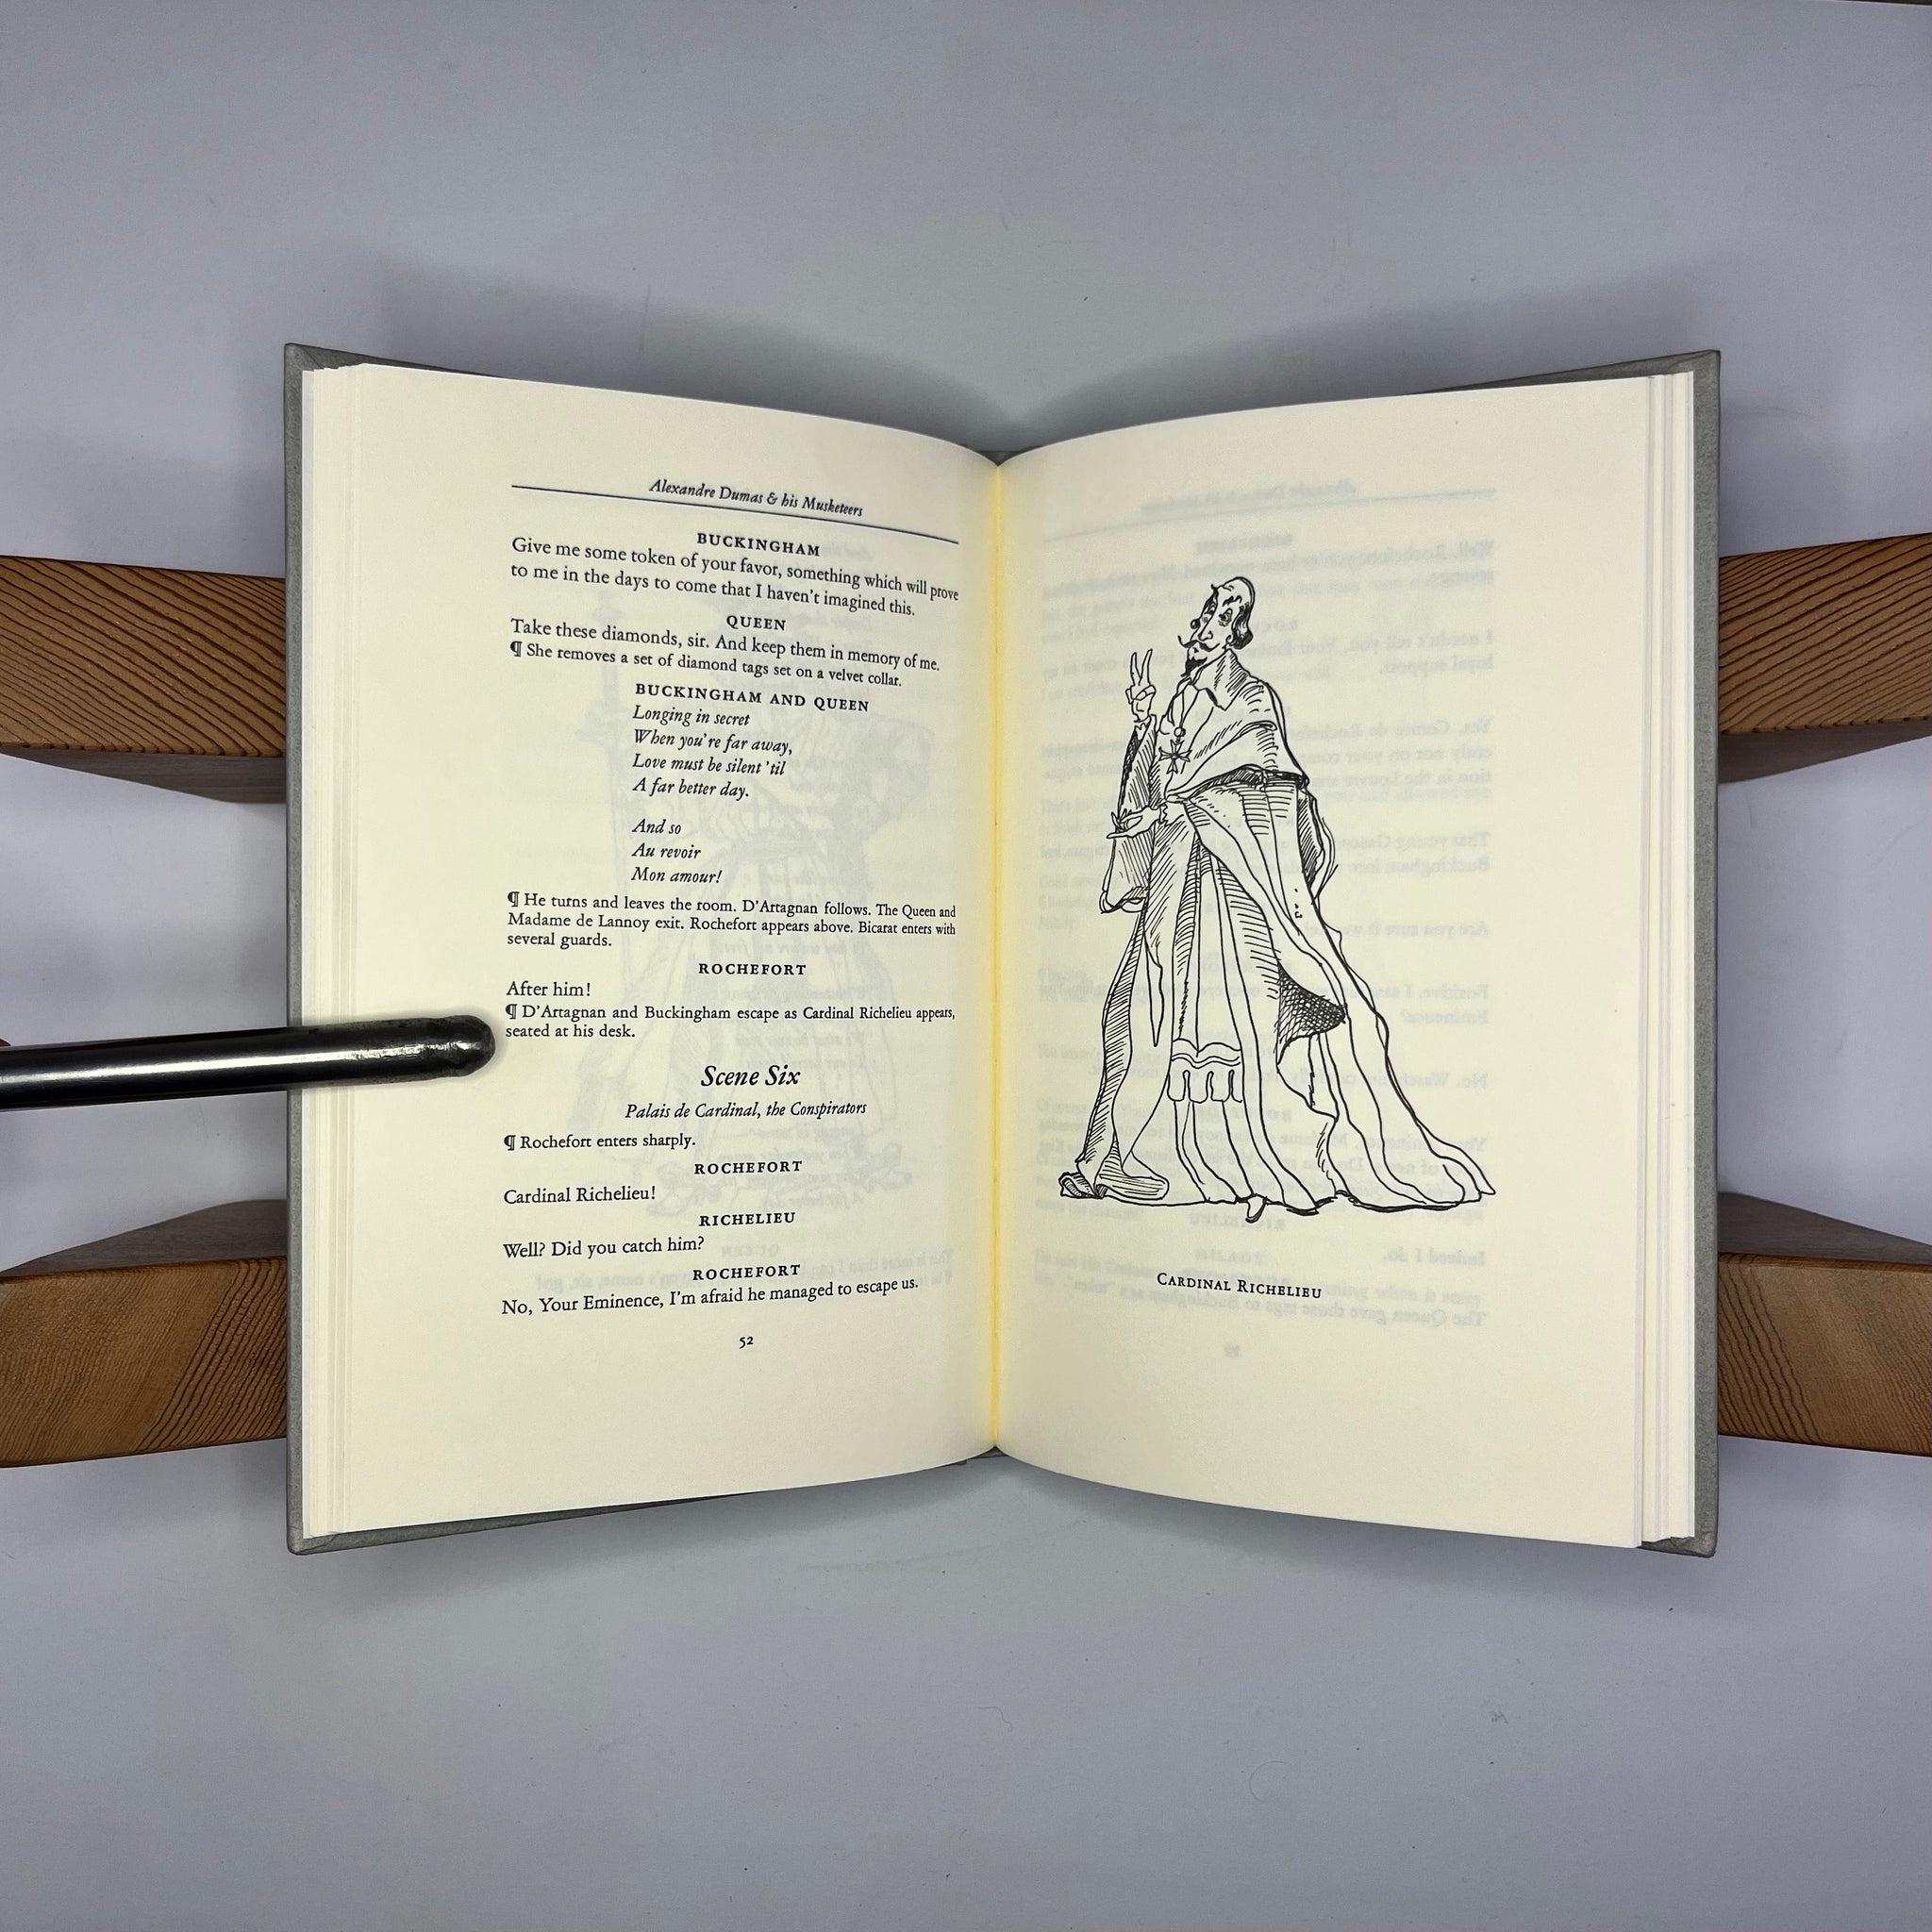 Alexandre Dumas & his Musketeers
BUCKINGHAM
Give me some token of your favor, something which will prove
to me in the days to come that I haven't imagined this.
QUEEN
Take these diamonds, sir. And keep them in memory of me.
¶ She removes a set of diamond tags set on a velvet collar.
BUCKINGHAM AND QUEEN
Longing in secret
When you're far away,
Love must be silent 'til
A far better day.
And so
Au revoir
Mon amour!
¶ He turns and leaves the room. D'Artagnan follows. The Queen and
Madame de Lannoy exit. Rochefort appears above. Bicarat enters with
several guards.
ROCHEFORT
After him!
¶ D'Artagnan and Buckingham escape as Cardinal Richelieu appears,
seated at his desk.
Scene Six
Palais de Cardinal, the Conspirators
¶ Rochefort enters sharply.
ROCHEFORT
Cardinal Richelieu!
RICHELIEU
Well? Did you catch him?
ROCHEFORT
No, Your Eminence, I'm afraid he managed to escape us.
52
CARDINAL RICHELIEU